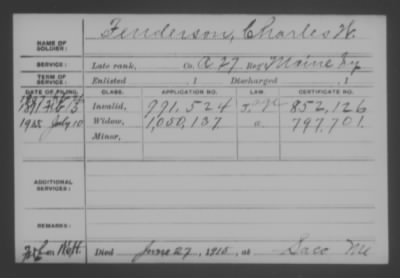 NAME OF SOLDIER: Fenderson, Charles W.
SERVICE: Late rank, Co. A 27 Reg't Maine Inf
TERM OF SERVICE: Enlisted , 1 Discharged , 1
DATE OF FILING. CLASS. APPLICATION NO. LAW. CERTIFICATE NO.
Invalid, 991,524 852,126
1915 July 10 Widow, 1,050,137 797,701.
Minor,
ADDITIONAL SERVICES:
REMARKS:
Died June 27, 1915, at Saco Me